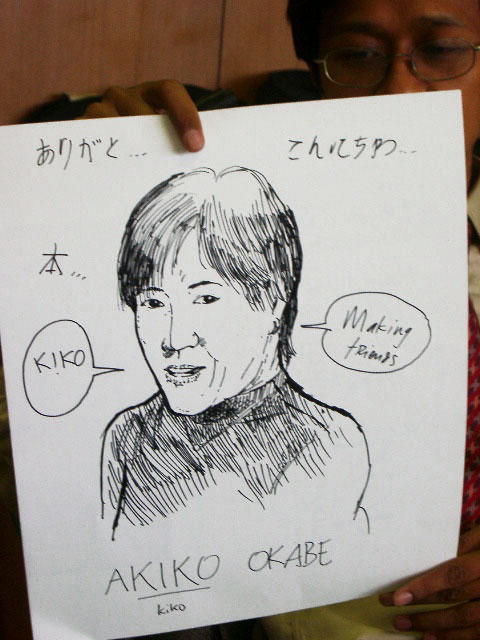 ありがと...
こんにちわ...
本...
KIKO
Making
friends
AKIKO OKABE
kiko